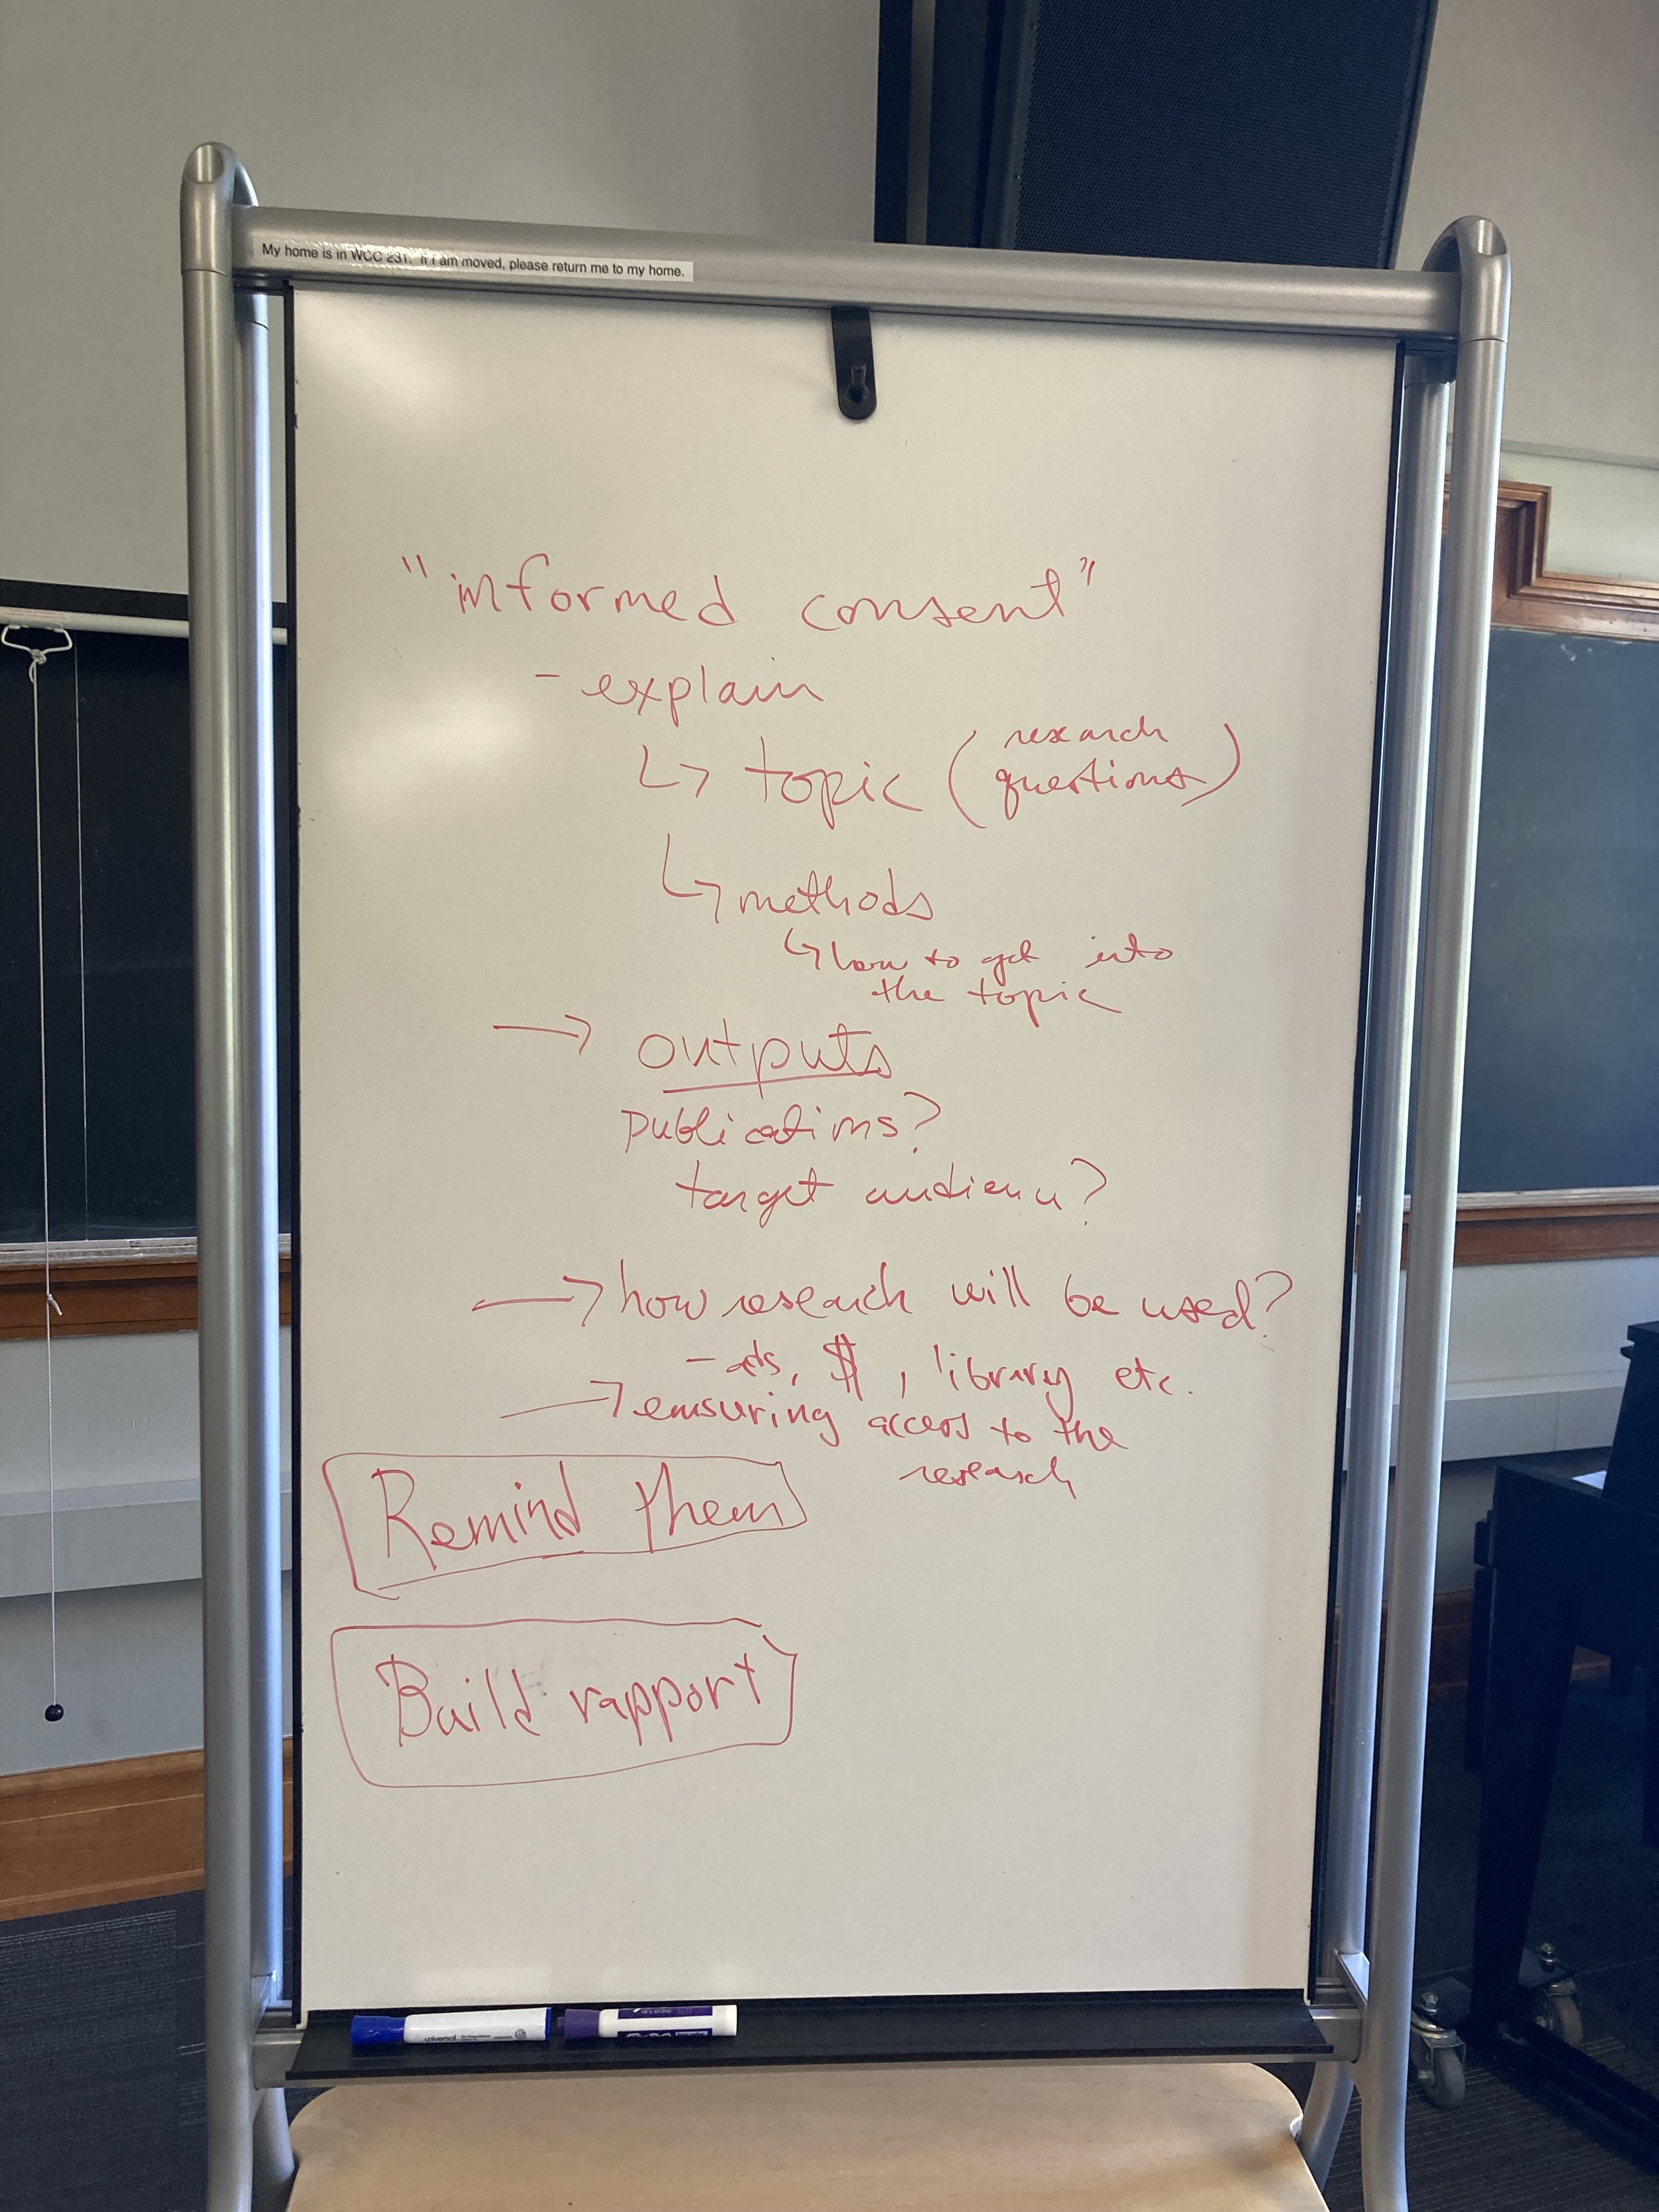 My home is in WCC 231. If I am moved, please return me to my home.
"informed consent"
- explain
↳ topic (research questions)
↳ methods
↳ how to get into
the topic
→ outputs
publications?
target audience?
→ how research will be used?
- ads, $, library etc.
→ ensuring access to the
research
Remind them
Build rapport
universal